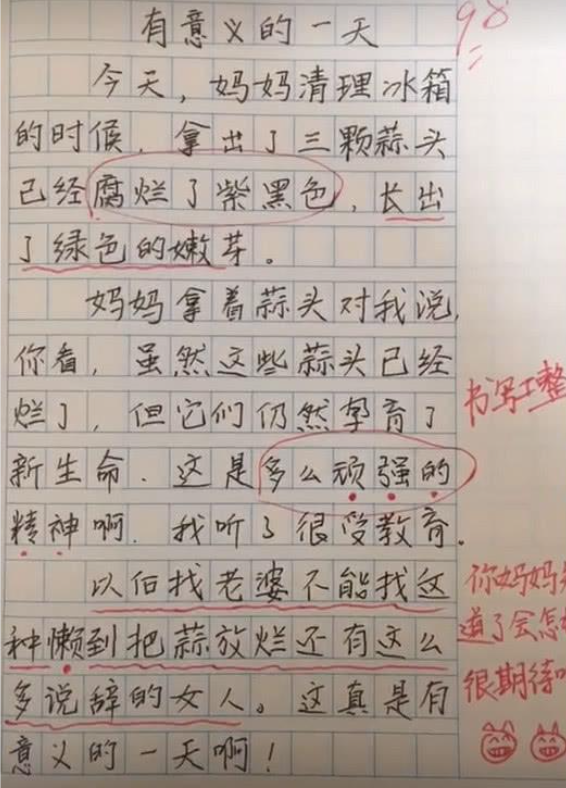 有意义的一天
98
今天，妈妈清理冰箱
的时候，拿出了三颗蒜头
已经腐烂了紫黑色，长出
了绿色的嫩芽。
妈妈拿着蒜头对我说，
你看，虽然这些蒜头已经
烂了，但它们仍然孕育了
新生命．这是多么顽强的
精神啊．我听了很受教育。
以后找老婆不能找这
种懒到把蒜放烂还有这么
多说辞的女人。这真是有
意义的一天啊！
书写工整
你妈妈
道了会怎
很期待